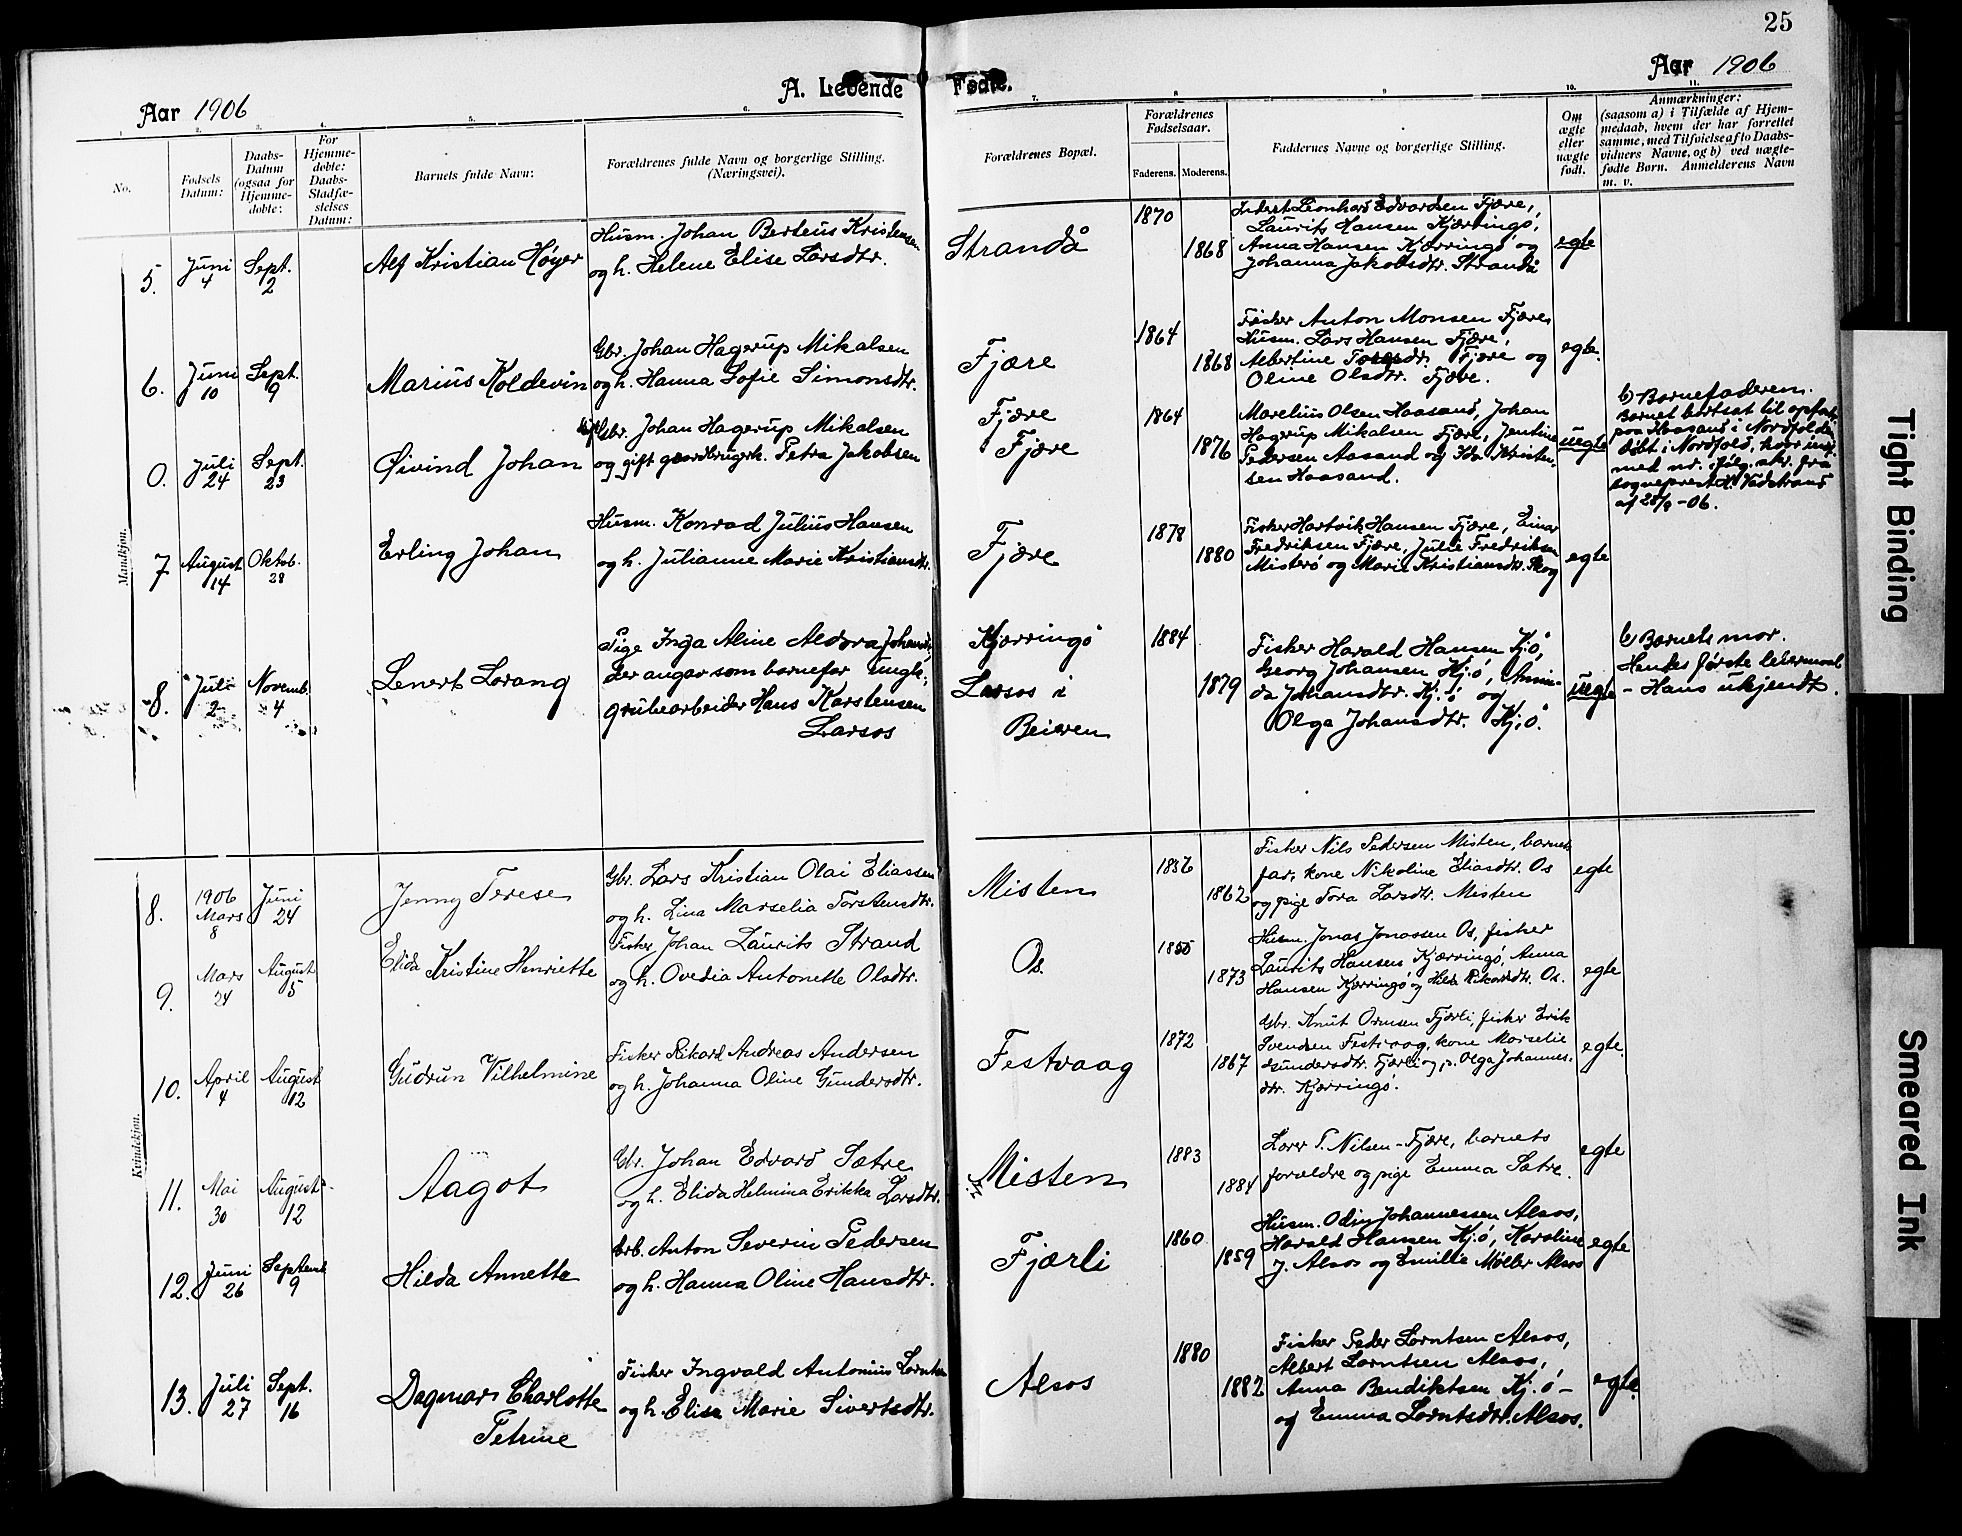 25
Aar 1906
A. Levende
Fødte.
Aar 1906
1.
2.
3.
4.
5.
6.
7.
8
9
10.
11.
No.
Fødsels
Datum:
Daabs-
Datum
(ogsaa for
Hjemme-
døbte:
For
Hjemme-
døbte:
Daabs-
Stadfæ-
stelses
Datum:
Barnets fulde Navn:
Forældrenes fulde Navn og borgerlige Stilling.
(Næringsvei).
Forældrenes Bopæl.
Forældrenes
Fødselsaar.
Faderens.
Moderens.
Faddernes Navne og borgerlige Stilling.
Om
ægte
eller
uægte
født.
Anmærkninger:
(saasom a) i Tilfælde af Hjem-
medaab, hvem der har forrettet
samme, med Tilføielse af to Daabs-
vidners Navne, og b) ved uægte-
fødte Børn. Anmelderens Navn
m. v.
Mandkjøn.
5.
Juni
4
Sept.
2
Alf Kristian Høyer
Husm. Johan Berteus Kristensen
og h. Helene Elise Larsdtr.
Strandå
1870
1868
Inderst Leonhard Edvardsen Fjære,
Laurits Hansen Kjærringø,
Anna Hansen Kjærringø og
Johanna Jakobsdtr. Strandå
egte
6.
Juni
10
Sept.
9
Marius Koldevin
Gbr. Johan Hagerup Mikalsen
og h. Hanna Sofie Simonsdtr.
Fjære
1864
1868
Fisker Anton Monsen Fjære,
Husm. Lars Hansen Fjære,
Albertine Fjære og
Oline Olsdtr. Fjære.
egte.
0.
Juli
24
Sept.
23
Øivind Johan
Gbr. Johan Hagerup Mikalsen
og gift gaardbrugerk. Petra Jakobsen
Fjære
Fjære
1864
1876
Marelius Olsen Haasand, Johan
Hagerup Mikalsen Fjære, Jentine
Pedersen Aasand og Ida Kristen-
sen Haasand.
uegte
b) Barnefaderen.
Barnet bortsat til opfostr.
paa Haasand i Nordfolden
Døbt i Nordfold, hvor indf.
med nr. ifølg. skr. fra
sogneprest H. Vadstrand
af 28/9 - 06.
7
August
14
Oktob.
28
Erling Johan
Husm. Konrad Julius Hansen
og h. Julianne Marie Kristiansdtr.
Fjære
1878
1880
Fisker Hartvik Hansen Fjære, Einar
Fredriksen Fjære, Julie Fredriksen
Misterø og Marie Kristiansdtr. Skog
egte
8.
Juli
2
Novemb.
4
Lenert Lorang
Pige Inga Aline Aldora Johansdtr,
der angav som barnefar ungk.,
grubearbeider Hans Karstensen
Larsos
Kjærringø
Larsos i
Beieren
1884
1879
Fisker Harald Hansen Kjø,
Georg Johansen Kj.ø, Amin-
da Johansdtr. Kj.ø og
Olga Johansdtr. Kj.ø.
uegte
b) Barnets mor.
Hendes første leiermaal
- Hans ukjendt.
Kvindekjøn.
8.
1906
Mars
8
Juni
24
Jenny Terese
Gbr. Lars Kristian Olai Eliassen
og h. Lina Marselia Torstensdtr.
Misten
1856
1862
Fisker Nils Pedersen Misten, barnets
far, kone Nikoline Eliasdtr. Os
og pige Tora Larsdtr. Misten
egte
9.
Mars
24
August
5
Elida Kristine Henriette
Fisker Johan Laurits Strand
og h. Ovedia Antonette Olsdtr.
Os.
1855
1873
Husm. Jonas Jonassen Os, fisker
Laurits Hansen Kjærringø, Anna
Hansen Kjærringø og Hilda Rikardsdtr. Os.
egte
10.
April
4
August
12
Gudrun Vilhelmine
Fisker Rikard Andreas Andersen
og h. Johanna Oline Gundersdtr.
Festvaag
1872
1867
Gbr. Knut Ormsen Fjærli, fisker Erik
Svendsen Festvaag, kone Marselie
Gundersdtr. Fjærli og p. Olga Johannes-
dtr. Kjærringø.
egte.
11.
Mai
30
August
12
Aagot
Gbr. Johan Edvard Sætre
og h. Elida Helmina Erikka Larsdtr.
Misten
1883
1884
Lærer T. Nilsen - Fjære, barnets
forældre og pige Emma Sætre.
egte
12.
Juni
26
Septemb
9
Hilda Annette
Arb. Anton Severin Pedersen
og h. Hanna Oline Hansdtr.
Fjærli
1860
1859
Husm. Odin Johannessen Alsos,
Harald Hansen Kj.ø, Karoline
J. Alsos og Emilie Møller Alsos
egte
13.
Juli
27
Sept.
16
Dagmar Charlotte
Petrine
Fisker Ingvald Antonius Lorntsen
og h. Elise Marie Sivertsdtr.
Alsos
1880
1882
Fisker Peder Lorntsen Alsos,
Albert Lorntsen Alsos,
Anna Bendiktsen Kj.ø -
og Emma Lorntsdtr. Alsos.
egte.
Tight Binding
Smeared Ink